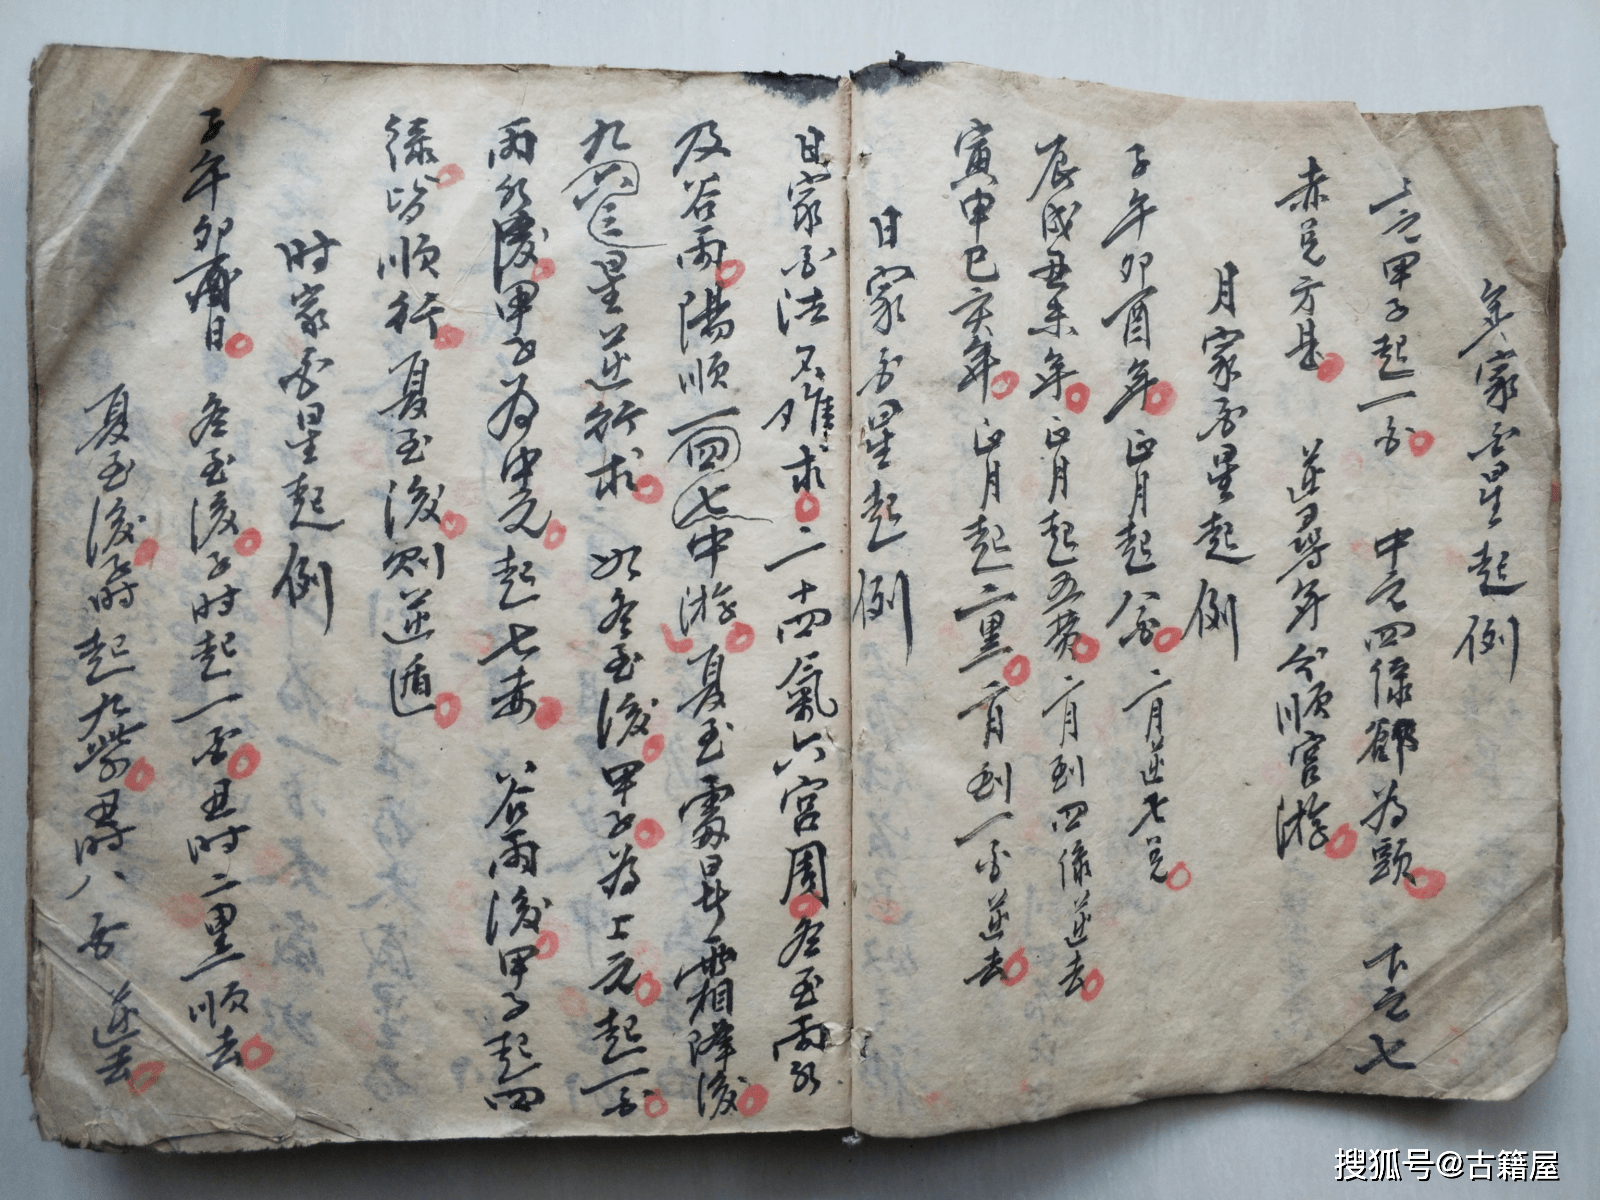 年家白星起例
上元甲子起一白 中元四綠郤為頭 下元七
赤兑方是 逆尋年分順宮游
月家白星起例
子午卯酉年正月起八白二月逆七兑
辰戌丑未年正月起五黄二月到四綠逆去
寅申巳亥年正月起二黑二月到一白逆去
日家白星起例
日家白法不难求二十四氣六宮周冬至雨水
及谷雨陽順一四七中游夏至處暑霜降後
九六三星逆行求 如冬至後甲子為上元起一白
雨水後甲子為中元起七赤 谷雨後甲子起四
綠皆順行夏至後則逆遁
时家白星起例
子午卯酉日 冬至後子时起一白丑时二黑順去
夏至後子时起九紫丑时八白逆去
搜狐号@古籍屋